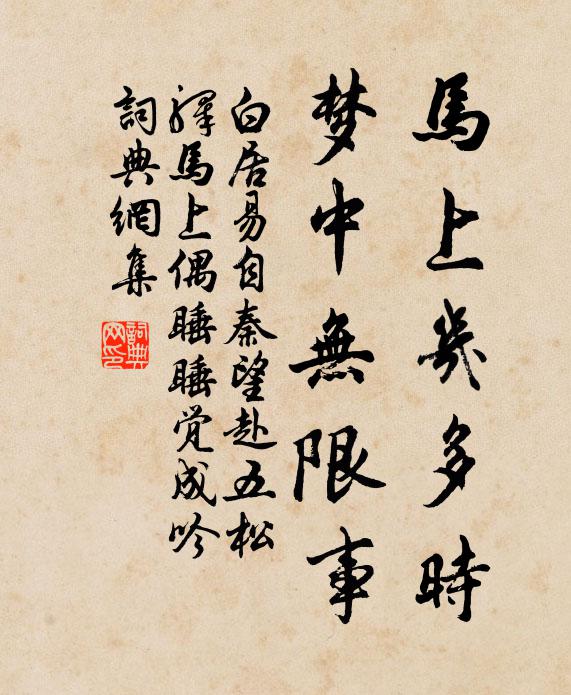 馬上幾多時
梦中無限事
白居易自秦望赴五松
驛馬上偶睡睡觉成吟
詞典網集
詞典
网印